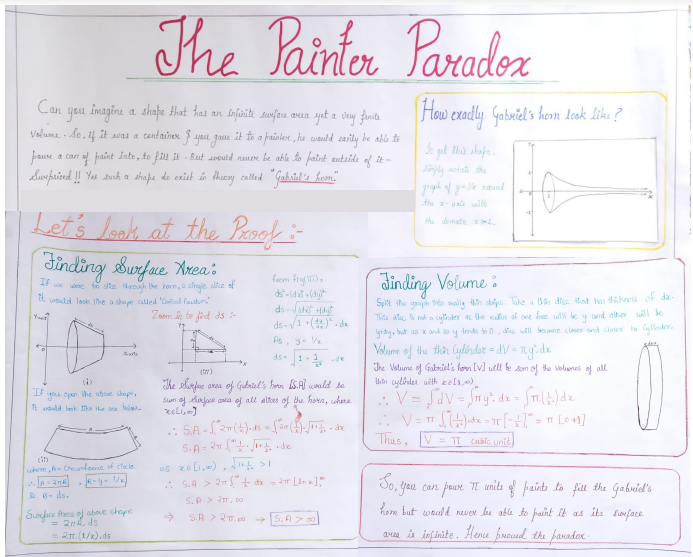 The Painter Paradox
Can you imagine a shape that has an infinite surface area yet a very finite
volume. So, if it was a container & you gave it to a painter, he would easily be able to
pour a can of paint into, to fill it. But would never be able to paint outside of it -
Surprized!! Yes such a shape do exist in theory called "Gabriel's horn."
How exactly Gabriel's horn look like?
To get this shape,
simply rotate the
graph of y=1/x around
the x-axis with
the domain x≥1.
Let's look at the Proof :-
Finding Surface Area:
If we were to slice through the horn, a single slice of
it would look like a shape called
Y-axis
X-axis
(i)
If you open the above shape,
it would look like the one below.
(ii)
where, A = Circumference of circle
∴ A = 2πR , R = y = 1/x
& B = ds.
Surface Area of above shape
= 2πR.ds
= 2π.(1/x).ds
Zoom in to find ds :-
(iii)
from fig (iii) =
ds² = (dx)² + (dy)²
ds = √(dx)² + (dy)²
ds = √1 + (dy/dx)² . dx
As, y = 1/x
ds = √1 + 1/x⁴ . dx
The Surface area of Gabriel's horn [S.A] would be
sum of surface area of all slices of the horn, where
x∈[1,∞]
∴ S.A = ∫₁^∞ 2π(1/x).ds = ∫₁^∞ 2π(1/x).√1+1/x⁴ . dx
S.A = 2π ∫₁^∞ 1/x . √1+1/x⁴ . dx
as x∈[1,∞) , √1+1/x⁴ > 1
∴ S.A > 2π ∫₁^∞ 1/x dx = 2π [ln x]₁^∞
S.A > 2π.∞
⇒ S.A > 2π.∞ → S.A > ∞
Finding Volume :
Split the graph into many thin strips. Take a thin disc that has thickness of dx.
This disc is not a cylinder as the radius of one face will be y and other will be
y+dy, but as x and so y tends to 0, disc will become closer and closer to Cylinder.
Volume of the thin Cylinder = dV = πy².dx
The Volume of Gabriel's horn [V] will be sum of the volumes of all
thin cylinder with x∈[1,∞)
∴ V = ∫₁^∞ dV = ∫₁^∞ πy².dx = ∫₁^∞ π(1/x²)dx
∴ V = π ∫₁^∞ (1/x²).dx = π[-1/x]₁^∞ = π [0+1]
Thus, V = π cubic unit
So, you can pour π units of paints to fill the Gabriel's
horn but would never be able to paint it as its surface
area is infinite. Hence proved the paradox.